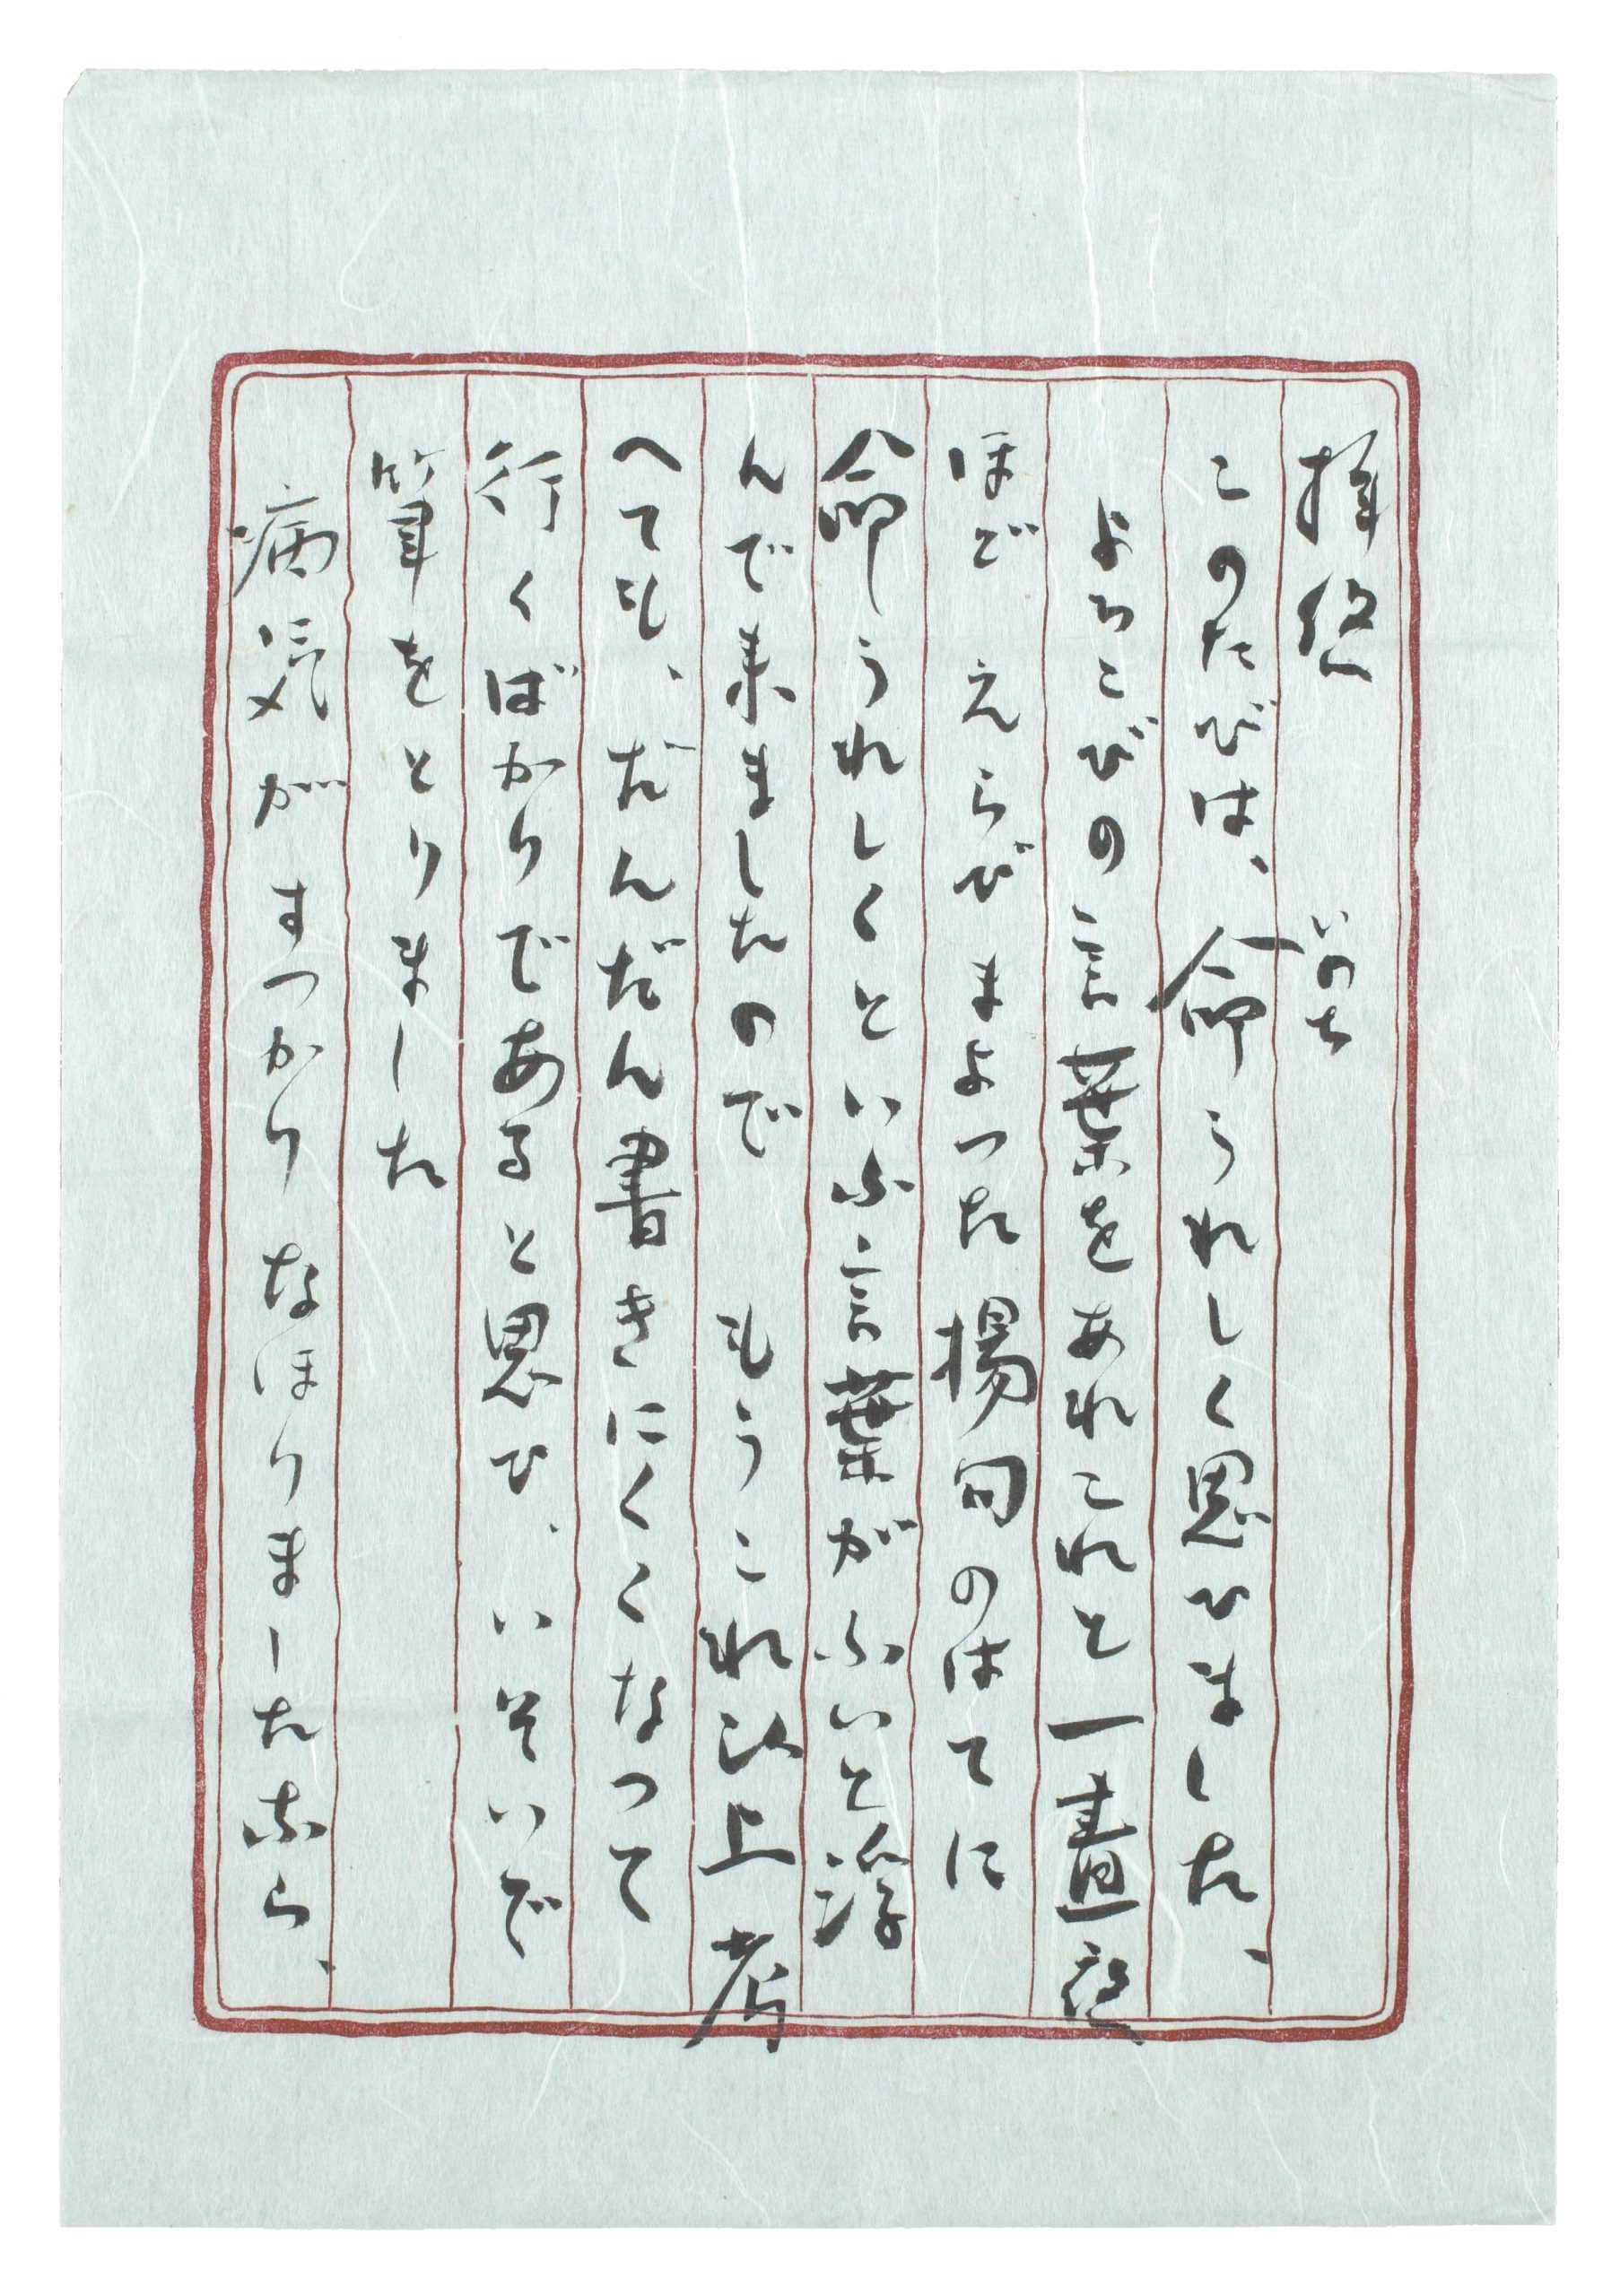 拝啓
いのち
このたびは、命うれしく思ひました、
よろこびの言葉をあれこれと一晝夜
ほど えらびまよつた 揚句のはてに
命うれしくといふ言葉がふいと浮
んで来ましたので もうこれ以上考
へても、だんだん書きにくくなつて
行くばかりであると思ひ、いそいで
筆をとりました
病気が すつかり なほりましたなら、